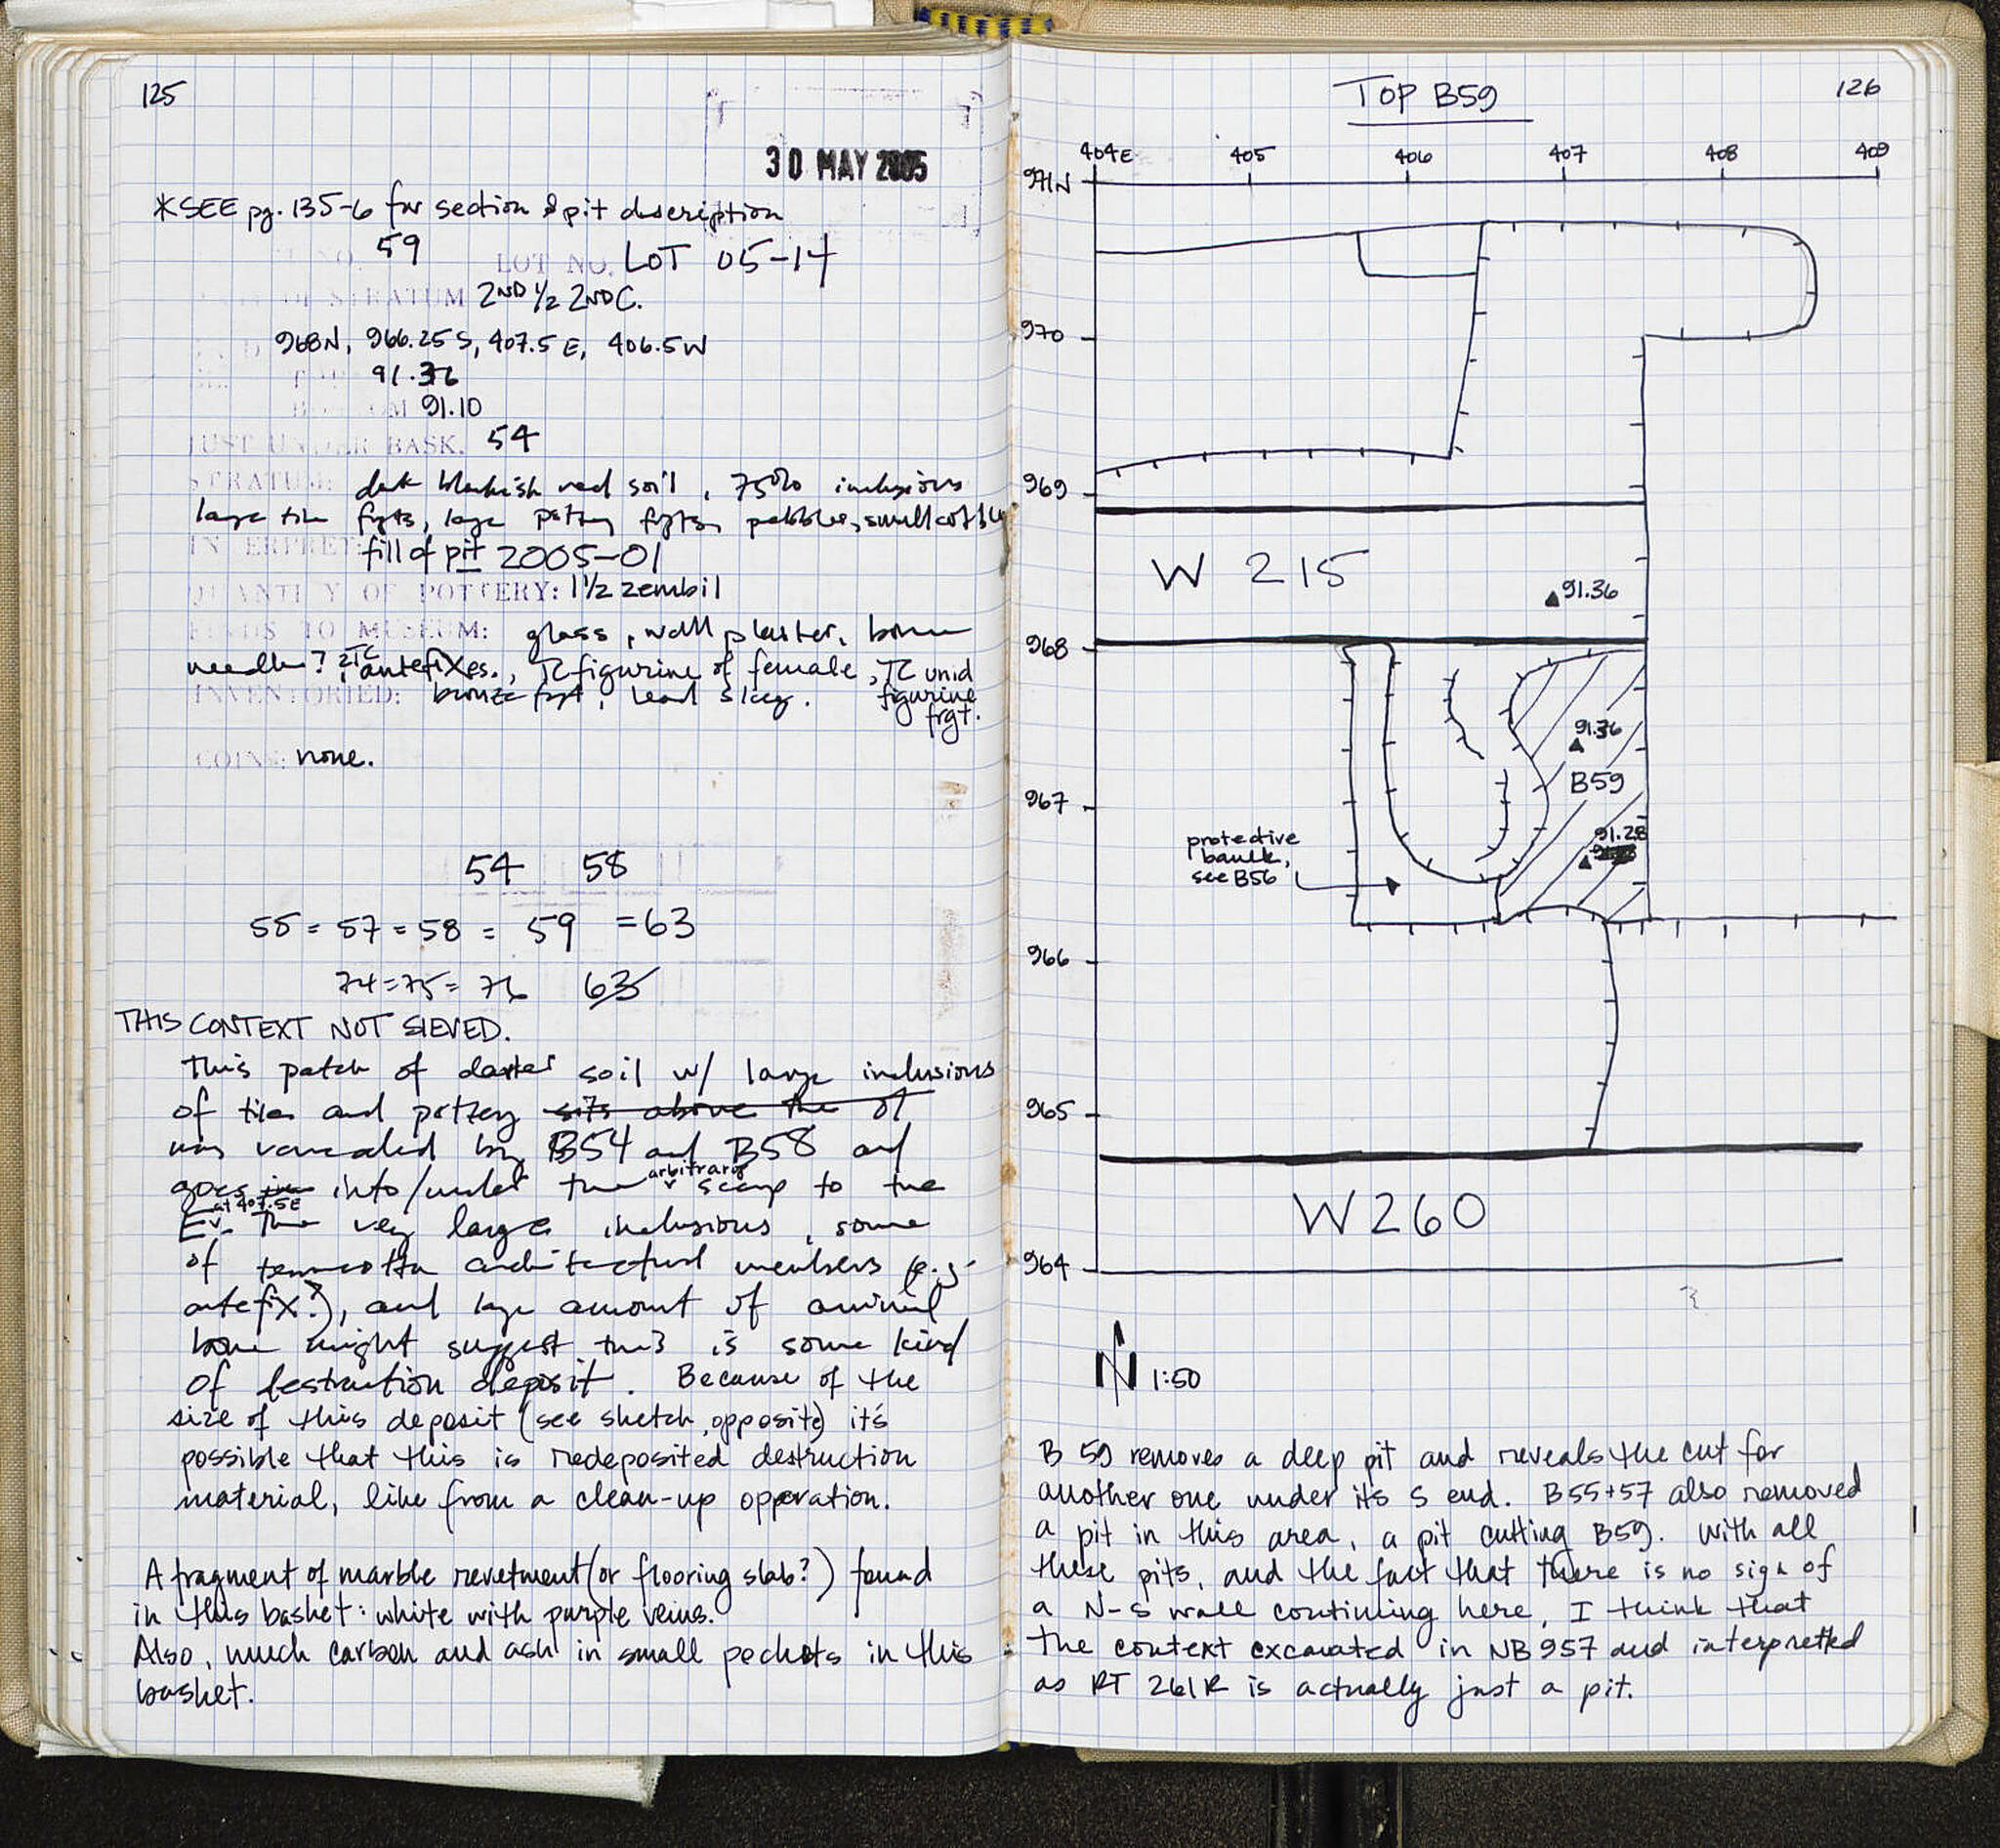 125
30 MAY 2005
*SEE pg. 135-6 for section & pit description
NO. 59 LOT NO. LOT 05-14
OF STRATUM 2ND 1/2 2ND C.
968N, 966.25 S, 407.5 E, 406.5 W
91.36
BOTTOM 91.10
JUST UNDER BASK. 54
STRATUM: dark blackish red soil, 75% inclusions
large tile frgts, large pottery frgts, pebbles, small cobbles
INTERPRET: fill of pit 2005-01
QUANTITY OF POTTERY: 1 1/2 zembil
FINDS TO MUSEUM: glass, wall plaster, bone
needle? 2 TC antefixes., TC figurine of female, TC unid
INVENTORIED: bronze frgt, lead slag. figurine
frgt.
COINS: none.
54 58
55 = 57 = 58 = 59 = 63
74 = 75 = 76 63
THIS CONTEXT NOT SIEVED.
This patch of darker soil w/ large inclusions
of tiles and pottery sits above the of
was revealed by B54 and B58 and
goes into/under the arbitrary scarp to the
E at 407.5E. The very large inclusions, some
of terracotta architectural members (e.g.
antefix?), and large amount of animal
bone might suggest this is some kind
of destruction deposit. Because of the
size of this deposit (see sketch, opposite) it's
possible that this is redeposited destruction
material, like from a clean-up opperation.
A fragment of marble revetment (or flooring slab?) found
in this basket: white with purple veins.
Also, much carbon and ash in small pockets in this
basket.
TOP B59
126
404E 405 406 407 408 409
971N
970
969
W 215
91.36
968
91.36
B59
967
91.28
protective
baulk,
see B56
966
965
W260
964
N 1:50
B 59 removes a deep pit and reveals the cut for
another one under its S end. B55+57 also removed
a pit in this area, a pit cutting B59. With all
these pits, and the fact that there is no sign of
a N-S wall continuing here, I think that
the context excavated in NB 957 and interpretted
as RT 261R is actually just a pit.